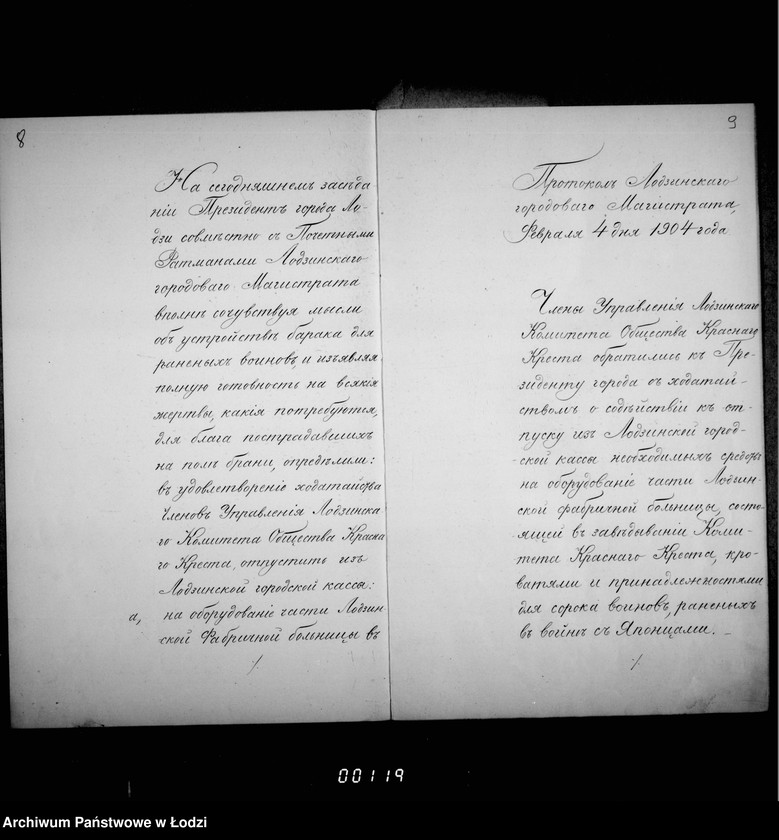 8
На сегодняшнемъ засѣда
ніи Президентъ города Ло-
дзи совмѣстно съ Почетными
Ратманами Лодзинскаго
городоваго Магистрата
вполнѣ сочувствуя мысли
объ устройствѣ барака для
раненыхъ воиновъ, и изъявляя
полную готовность на всякія
жертвы, какія потребуются,
для блага пострадавшихъ
на полѣ брани, опредѣлили:
въ удовлетвореніе ходатайства
Членовъ Управленія Лодзинска
го Комитета Общества Красна
го Креста, отпустить изъ
Лодзинской городской кассы:
а, на оборудованіе части Лодзин
ской Фабричной больницы въ
./.
9
Протоколъ Лодзинскаго
городоваго Магистрата,
Февраля 4 дня 1904 года
Члены Управленія Лодзинскаго
Комитета Общества Краснаго
Креста обратились къ Пре-
зиденту города съ ходатай-
ствомъ о содѣйствіи къ от-
пуску изъ Лодзинской город-
ской кассы необходимыхъ средствъ
на оборудованіе части Лодзин-
ской фабричной больницы, состо-
ящей въ завѣдываніи Коми-
тета Краснаго Креста, кро-
ватями и принадлежностями
для сорока воиновъ, раненыхъ
въ войнѣ съ Японцами. –
./.
00119
Archiwum Państwowe w Łodzi